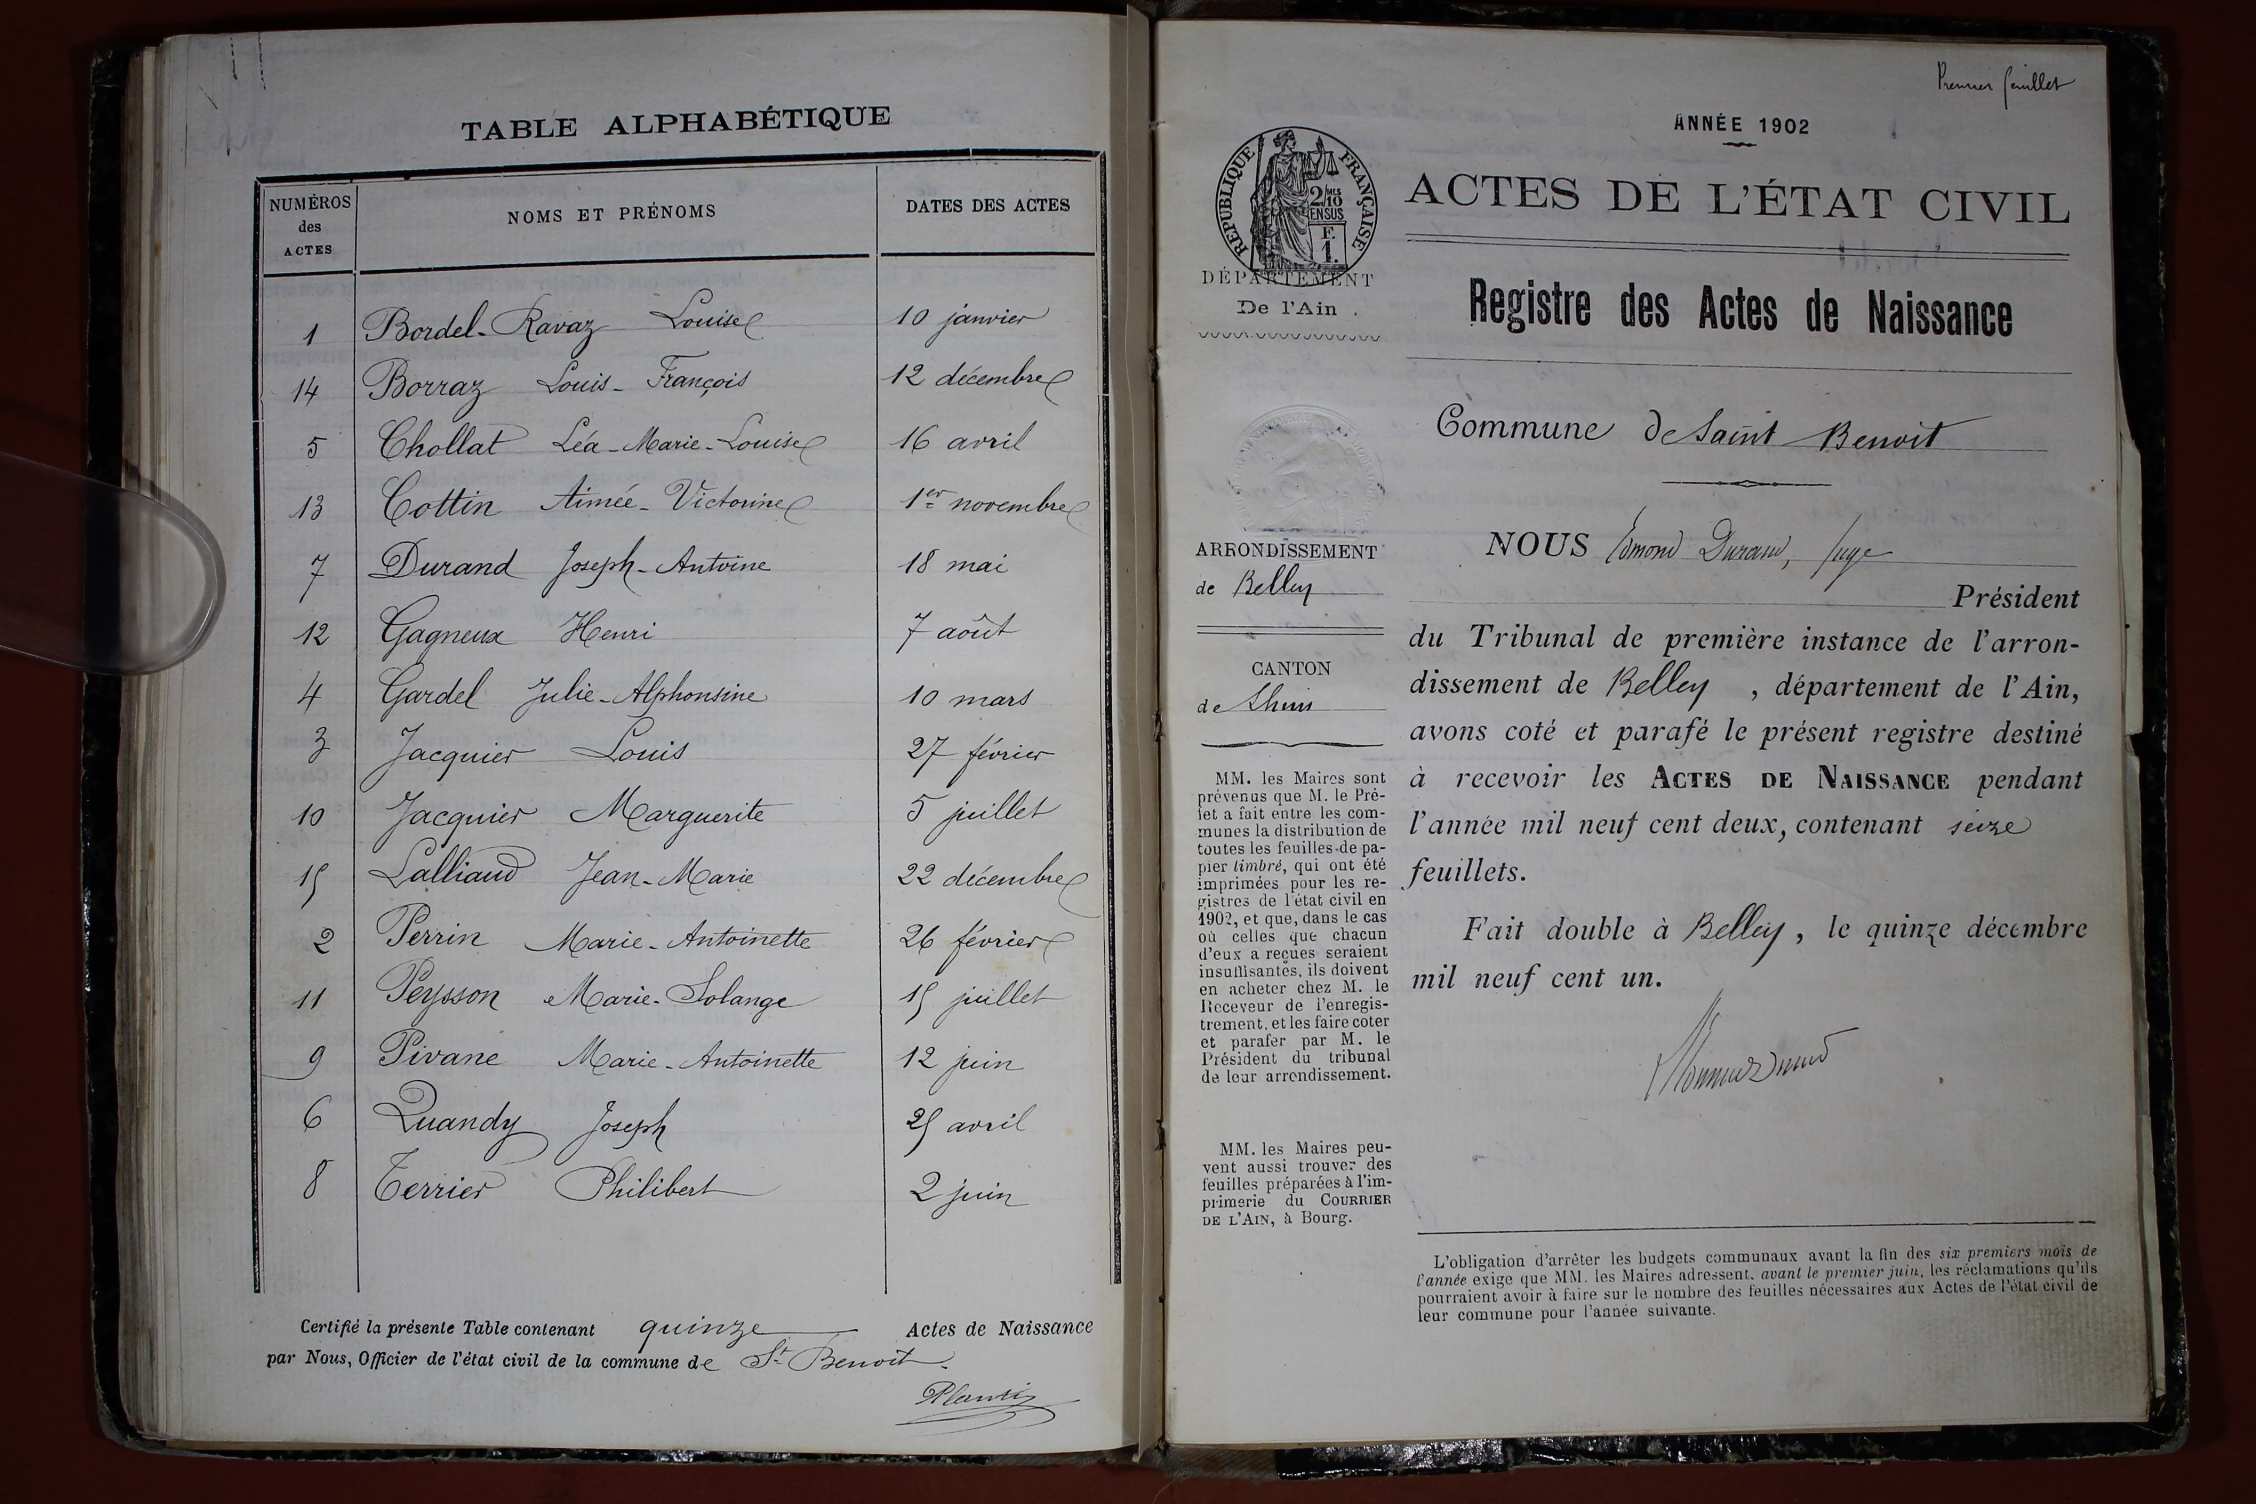 TABLE ALPHABÉTIQUE
NUMÉROS des ACTES
NOMS ET PRÉNOMS
DATES DES ACTES
1 Bordel-Ravaz Louise 10 janvier
14 Borraz Louis-François 12 décembre
5 Chollat Léa-Marie-Louise 16 avril
13 Cottin Aimée-Victorine 1er novembre
7 Durand Joseph-Antoine 18 mai
12 Gagneux Henri 7 août
4 Gardel Julie-Alphonsine 10 mars
3 Jacquier Louis 27 février
10 Jacquier Marguerite 5 juillet
15 Lalliaud Jean-Marie 22 décembre
2 Perrin Marie-Antoinette 26 février
11 Peysson Marie-Solange 15 juillet
9 Pivane Marie-Antoinette 12 juin
6 Quandy Joseph 25 avril
8 Terrier Philibert 2 juin
Certifié la présente Table contenant quinze Actes de Naissance
par Nous, Officier de l'état civil de la commune de St Benoit.
Premier feuillet
ANNÉE 1902
ACTES DE L'ÉTAT CIVIL
RÉPUBLIQUE FRANÇAISE
2/10 MES
EN SUS
F.
1.
DÉPARTEMENT
De l'Ain.
Registre des Actes de Naissance
Commune de Saint Benoit
ARRONDISSEMENT
de Belley
CANTON
de Lhuis
MM. les Maires sont
prévenus que M. le Pré-
fet a fait entre les com-
munes la distribution de
toutes les feuilles de pa-
pier timbré, qui ont été
imprimées pour les re-
gistres de l'état civil en
1902, et que, dans le cas
où celles que chacun
d'eux a reçues seraient
insuffisantes, ils doivent
en acheter chez M. le
Receveur de l'enregis-
trement, et les faire coter
et parafer par M. le
Président du tribunal
de leur arrondissement.
MM. les Maires peu-
vent aussi trouver des
feuilles préparées à l'im-
primerie du COURRIER
DE L'AIN, à Bourg.
NOUS Edmond Durand, Juge
Président
du Tribunal de première instance de l'arron-
dissement de Belley, département de l'Ain,
avons coté et parafé le présent registre destiné
à recevoir les ACTES DE NAISSANCE pendant
l'année mil neuf cent deux, contenant seize
feuillets.
Fait double à Belley, le quinze décembre
mil neuf cent un.
L'obligation d'arrêter les budgets communaux avant la fin des six premiers mois de
l'année exige que MM. les Maires adressent, avant le premier juin, les réclamations qu'ils
pourraient avoir à faire sur le nombre des feuilles nécessaires aux Actes de l'état civil de
leur commune pour l'année suivante.